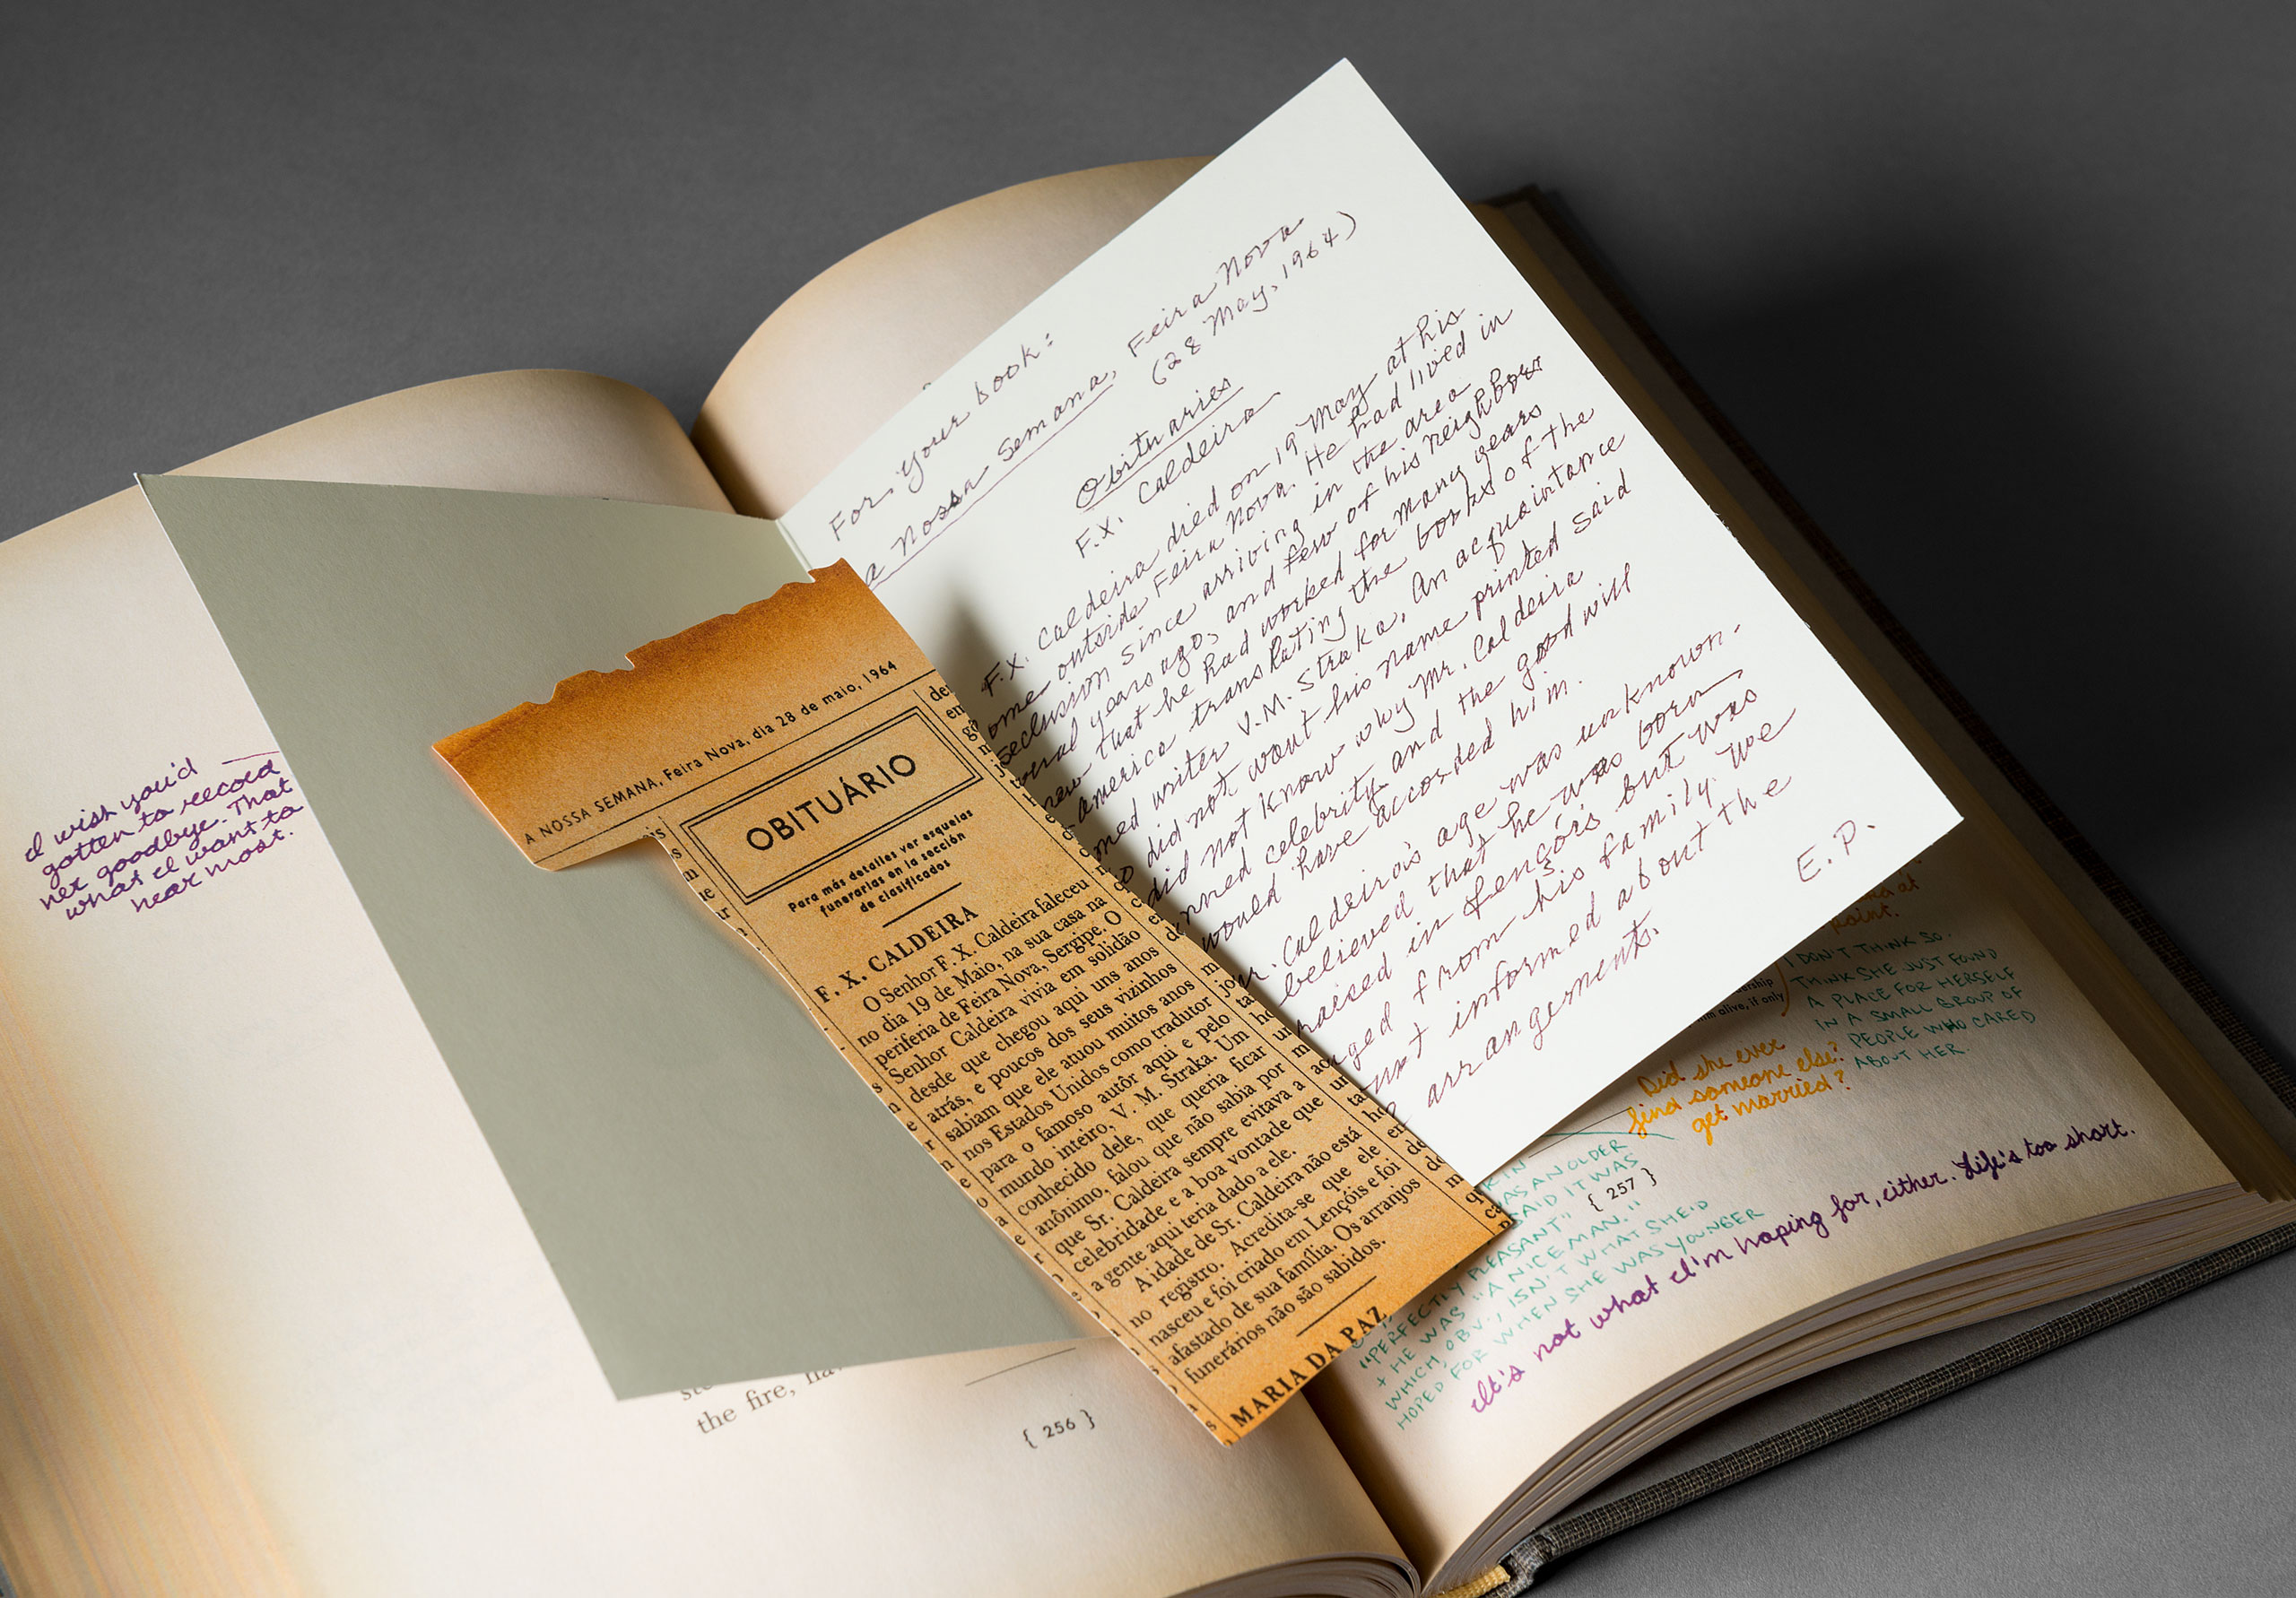 I wish you'd
gotten to record
her goodbye. That
what I want to
hear most.
the fire,
{ 256 }
A NOSSA SEMANA, Feira Nova, dia 28 de maio, 1964
OBITUÁRIO
Para más detalles ver esquelas
funerarias en la sección
de clasificados
F. X. CALDEIRA
O Senhor F. X. Caldeira faleceu
no dia 19 de Maio, na sua casa na
periferia de Feira Nova, Sergipe. O
Senhor Caldeira vivia em solidão
desde que chegou aqui uns anos
atrás, e poucos dos seus vizinhos
sabiam que ele atuou muitos anos
nos Estados Unidos como tradutor
para o famoso autôr aqui e pelo
mundo inteiro, V. M. Straka. Um
conhecido dele, que queria ficar
anônimo, falou que não sabia por
que Sr. Caldeira sempre evitava a
celebridade e a boa vontade que
a gente aqui teria dado a ele.
A idade de Sr. Caldeira não está
no registro. Acredita-se que ele
nasceu e foi criado em Lençóis e foi
afastado de sua família. Os arranjos
funerários não são sabidos.
MARIA DA PAZ
For your book:
a Nossa Semana, Feira Nova
(28 May, 1964)
Obituaries
F.X. Caldeira
F.X. Caldeira died on 19 May at his
ome outside Feira Nova. He had lived in
seclusion since arriving in the area
years ago, and few of his neighbors
new that he had worked for many years
america translating the books of the
writer V.M. Straka. An acquaintance
did not want his name printed said
did not know why Mr. Caldeira
celebrity and the good will
would have accorded him.
Caldeira's age was unknown.
believed that he was born
raised in Lençóis but was
from his family. We
informed about the
arrangements.
E.P.
point.
I DON'T THINK SO.
THINK SHE JUST FOUND
A PLACE FOR HERSELF
IN A SMALL GROUP OF
PEOPLE WHO CARED
ABOUT HER.
alive, if only
Did she ever
find someone else?
get married?
AN OLDER
SAID IT WAS
{ 257 }
"PERFECTLY PLEASANT"
+ HE WAS "A NICE MAN."
WHICH, OBV., ISN'T WHAT SHE'D
HOPED FOR WHEN SHE WAS YOUNGER
It's not what I'm hoping for, either. Life's too short.